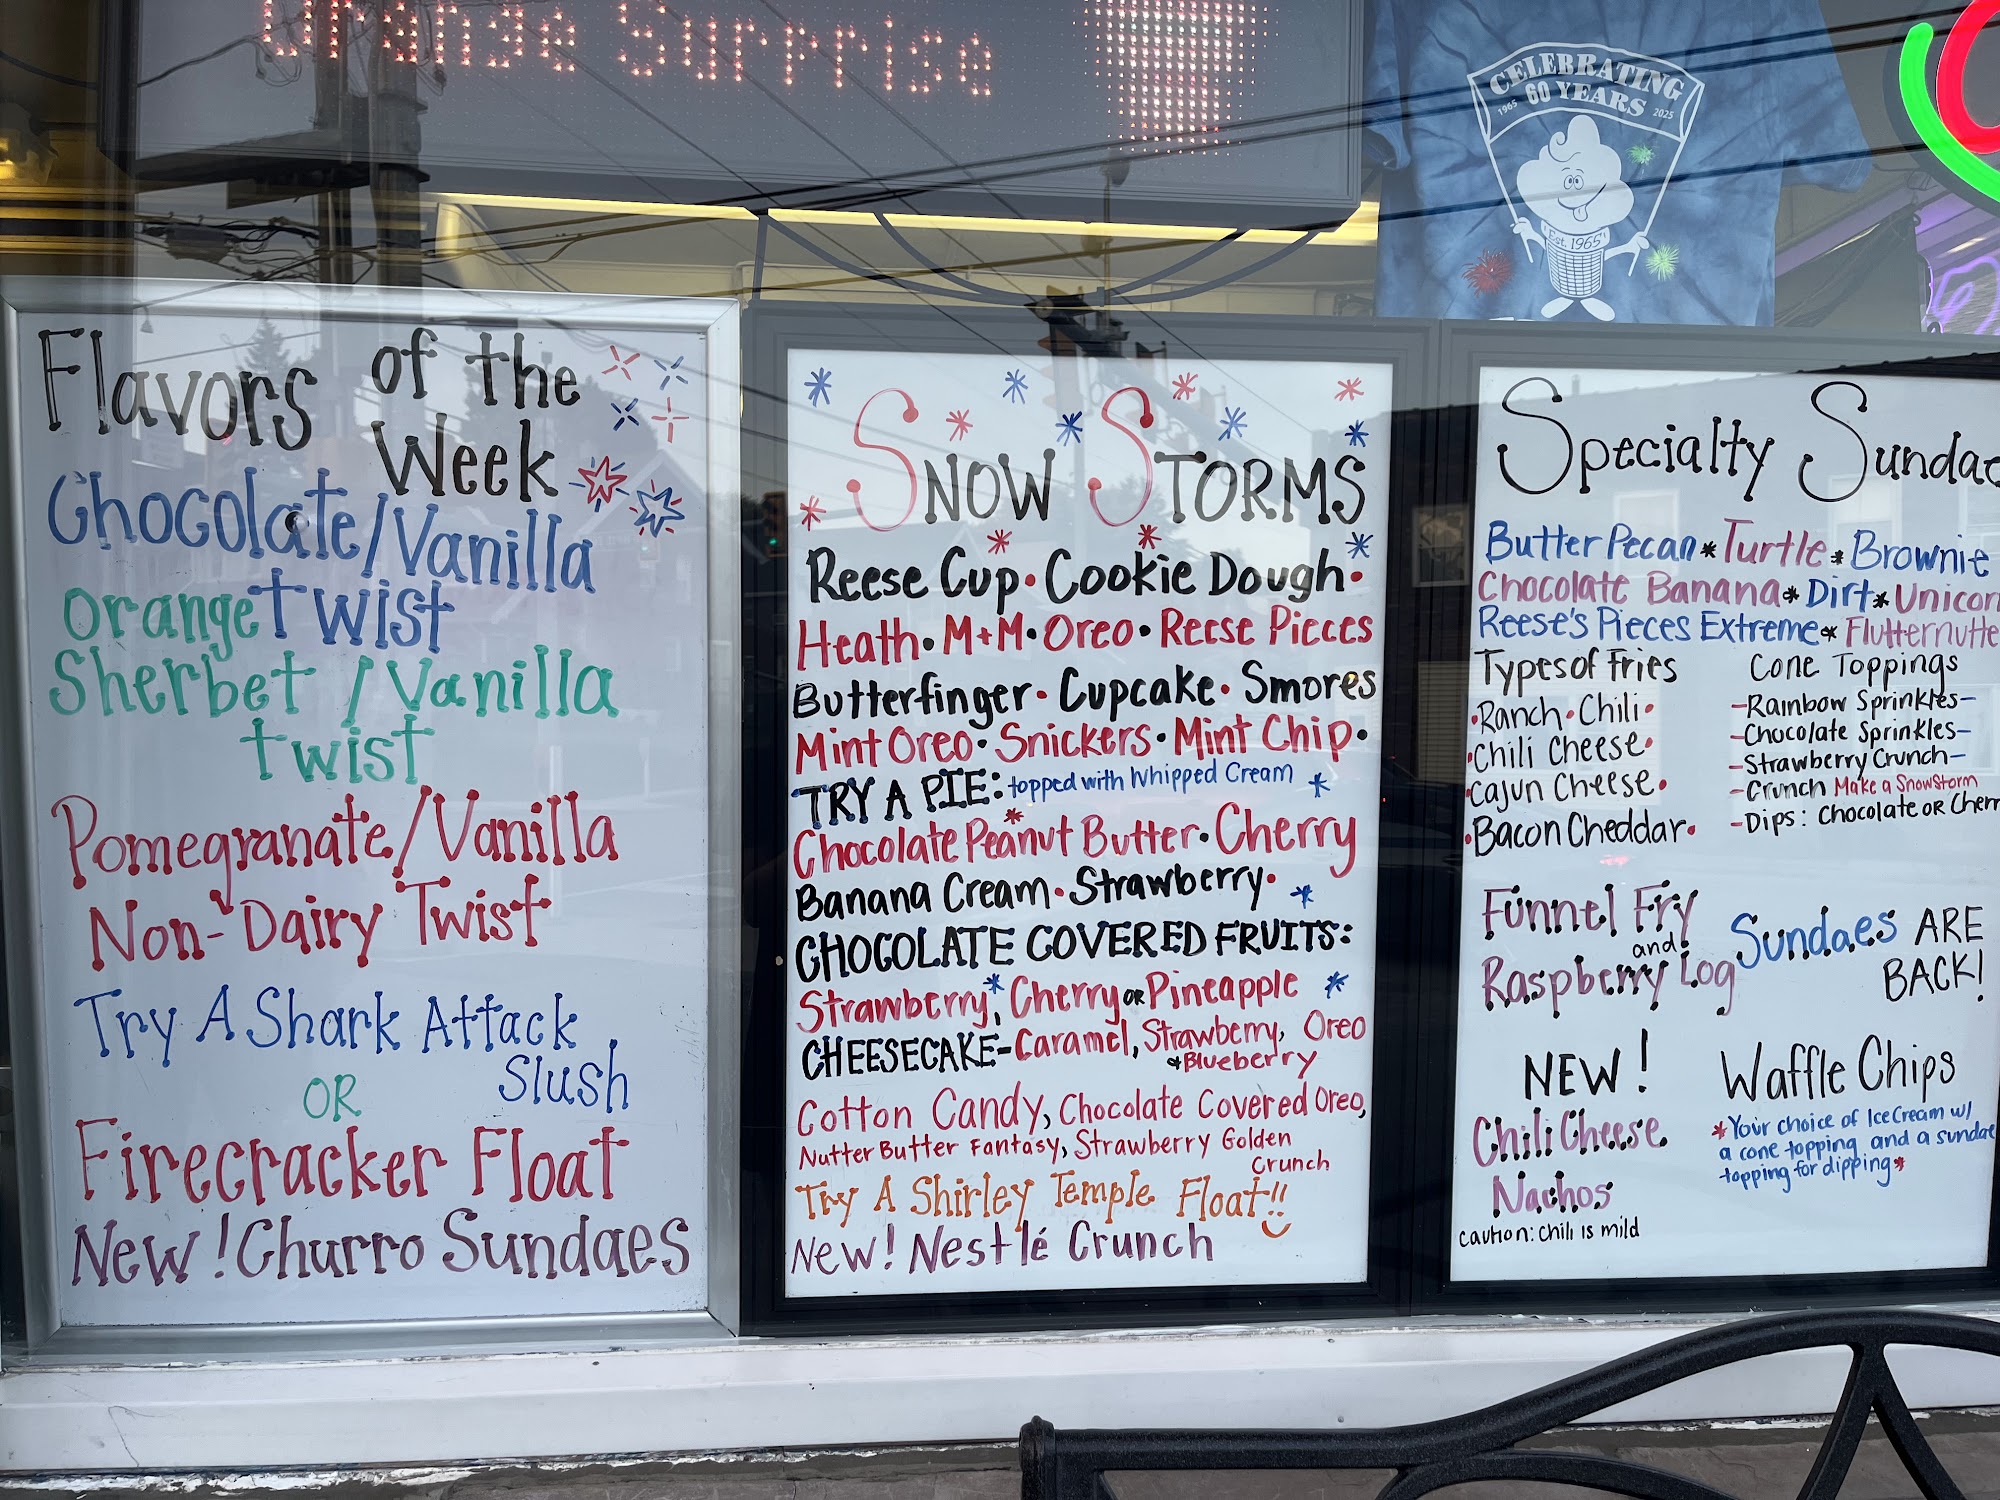 Orange Surprise
CELEBRATING
60 YEARS
1965 2025
Est. 1965
Flavors of the
Week
Chocolate/Vanilla
Twist
Orange
Sherbet/Vanilla
Twist
Pomegranate/Vanilla
Non-Dairy Twist
Try A Shark Attack
Slush
OR
Firecracker Float
New! Churro Sundaes
SNOW STORMS
Reese Cup • Cookie Dough •
Heath • M+M • Oreo • Reese Pieces
Butterfinger • Cupcake • Smores
Mint Oreo • Snickers • Mint Chip •
TRY A PIE: topped with Whipped Cream *
Chocolate Peanut Butter • Cherry
Banana Cream • Strawberry •
CHOCOLATE COVERED FRUITS:
Strawberry, Cherry or Pineapple
CHEESECAKE- Caramel, Strawberry, Oreo
+ Blueberry
Cotton Candy, Chocolate Covered Oreo,
Nutter Butter Fantasy, Strawberry Golden
Crunch
Try A Shirley Temple Float!!
New! Nestlé Crunch
Specialty Sundae
Butter Pecan * Turtle * Brownie
Chocolate Banana * Dirt * Unicorn
Reese's Pieces Extreme * Flutternutte
Types of Fries
• Ranch • Chili •
• Chili Cheese •
• Cajun Cheese •
• Bacon Cheddar •
Cone Toppings
- Rainbow Sprinkles -
- Chocolate Sprinkles -
- Strawberry Crunch -
- Crunch Make a SnowStorm
- Dips: Chocolate or Cherr
Funnel Fry
and
Raspberry Log
Sundaes ARE
BACK!
NEW!
Chili Cheese
Nachos
caution: chili is mild
Waffle Chips
* Your choice of Ice Cream w/
a cone topping and a sundae
topping for dipping *